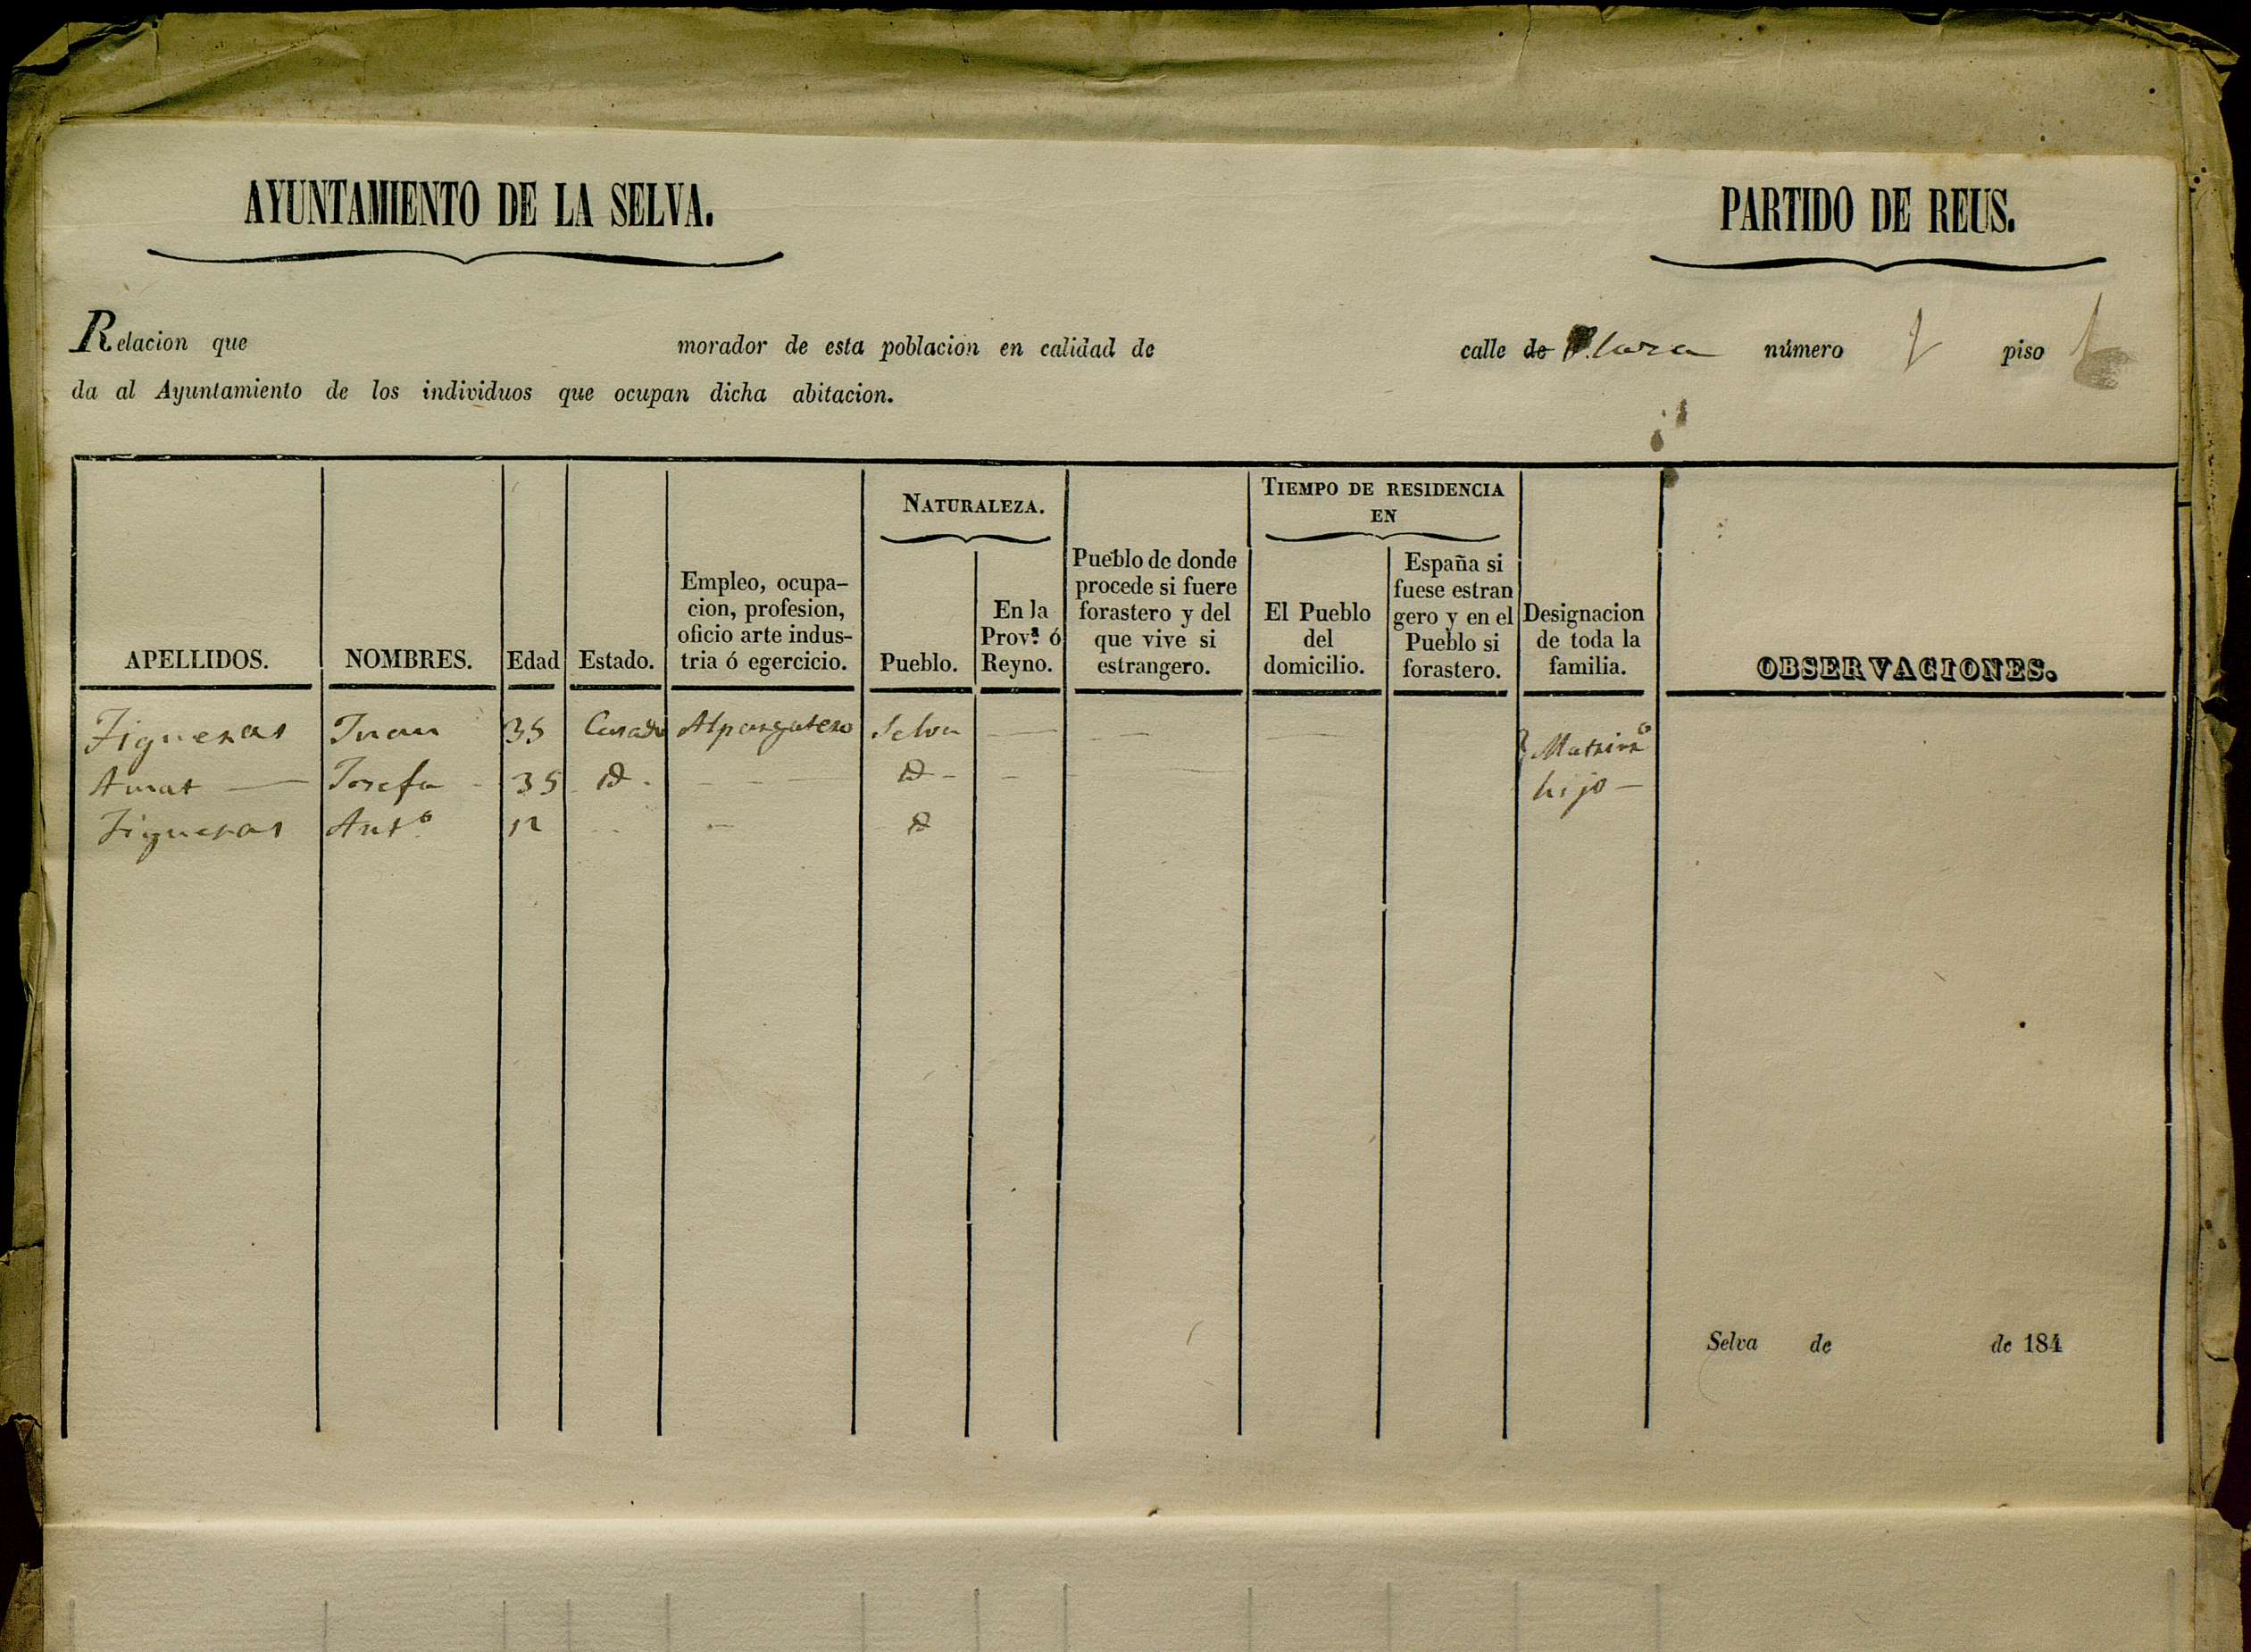 AYUNTAMIENTO DE LA SELVA.
PARTIDO DE REUS.
Relacion que morador de esta poblacion en calidad de calle de Plaza número 1 piso
da al Ayuntamiento de los individuos que ocupan dicha abitacion.
APELLIDOS.
NOMBRES.
Edad
Estado.
Empleo, ocupa-
cion, profesion,
oficio arte indus-
tria ó egercicio.
NATURALEZA.
Pueblo.
En la
Prov.ª ó
Reyno.
Pueblo de donde
procede si fuere
forastero y del
que vive si
estrangero.
TIEMPO DE RESIDENCIA
EN
El Pueblo
del
domicilio.
España si
fuese estran
gero y en el
Pueblo si
forastero.
Designacion
de toda la
familia.
OBSERVACIONES.
Figueras Juan 35 Casado Alpargatero Selva — — — Matrim.º
Amat — Josefa - 35 id - - - - id - - hijo —
Figueras Ant.º 12 - - - id
Selva de de 184